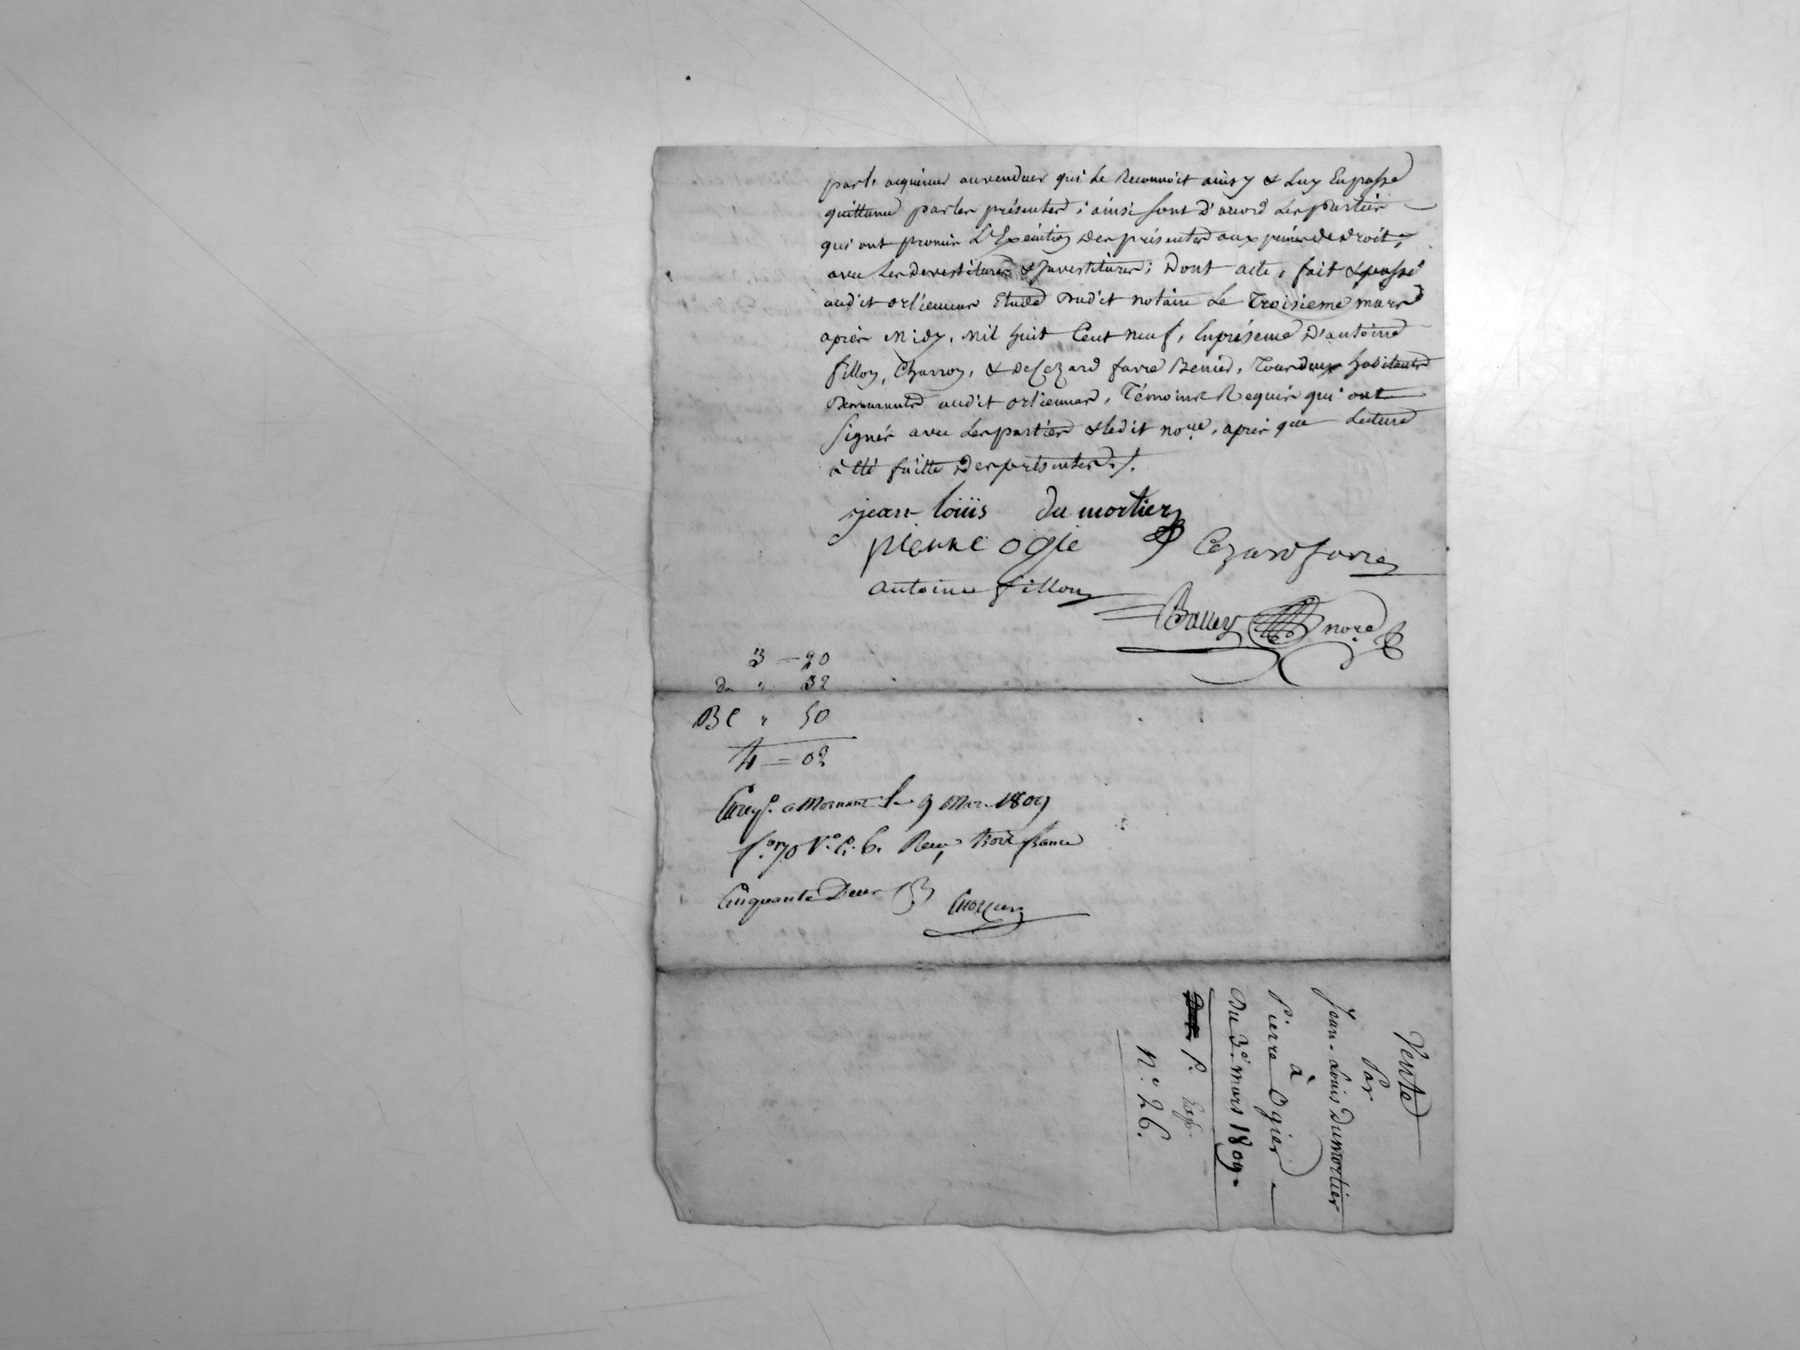 par l'acquéreur au vendeur qui le Reconnoit ainsy & Luy En passe
quittance par les présentes ; ainsi sont d'acord les parties
qui ont promis L'Exécution des présentes aux peines de droit,
avec les devestitures & Investitures ; Dont acte, fait & passé
audit orliennas Etude dudit notaire le Troisieme mars
après Midy, Mil huit Cent neuf, En présence d'antoine
fillon, Charron, & de Cezard favre Benier, Tous deux habitants
demeurants audit orliennas, Témoins Requis qui ont
signés avec les parties & ledit no.re, après que Lecture
a été faitte des présentes ./.
jean louis du mortier
pierre ogie Cezard favre
antoine fillon
no.re
3 — 20
de " 32
BC " 50
4 = 02
Enreg.é a Mornant le 9 Mars 1809
f.o 70 V.o C. 6. Reçu trois francs
Cinquante Deux
Vente
Par
Jean-Louis Dumortier
à
Pierre Ogier
Du 3.e mars 1809.
P. Exp.
N.o 26.